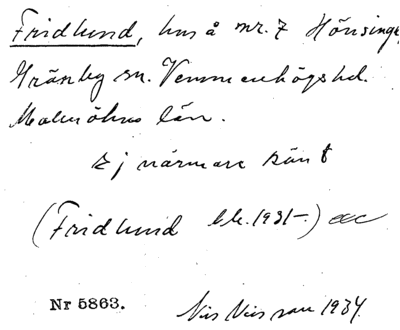 Fridlund, hus å nr. 7 Hönsinge,
Gränby sn. Vemmenhögs hd.
Malmöhus län.
Ej närmare känt
(Fridlund bl. 1931–)
Nr 5863. Nils Nilsson 1934.